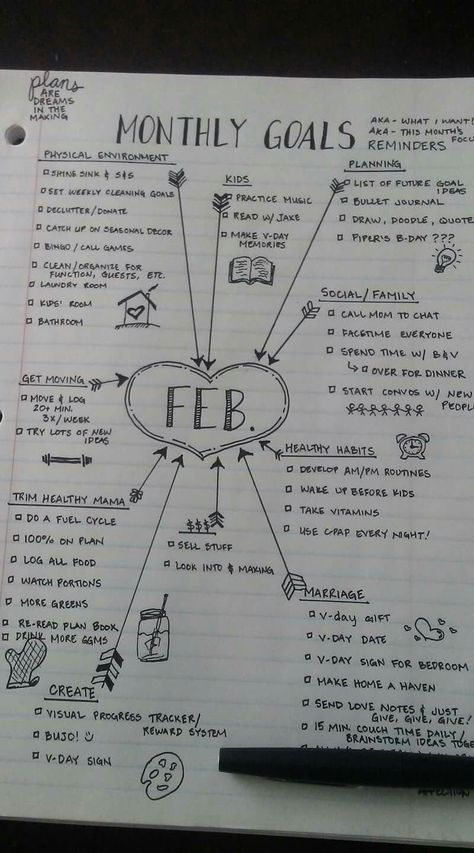 plans
ARE
DREAMS
IN THE
MAKING
MONTHLY GOALS
AKA - WHAT I WANT!
AKA - THIS MONTH'S
FOCUS
REMINDERS
PHYSICAL ENVIRONMENT
SHINE SINK & S&S
SET WEEKLY CLEANING GOALS
DECLUTTER/DONATE
CATCH UP ON SEASONAL DECOR
BINGO / CALL GAMES
CLEAN/ORGANIZE FOR
FUNCTION, GUESTS, ETC.
LAUNDRY ROOM
KIDS' ROOM
BATHROOM
KIDS
PRACTICE MUSIC
READ W/ JAKE
MAKE V-DAY
MEMORIES
PLANNING
LIST OF FUTURE GOAL
IDEAS
BULLET JOURNAL
DRAW, DOODLE, QUOTE
PIPER'S B-DAY ???
SOCIAL/FAMILY
CALL MOM TO CHAT
FACETIME EVERYONE
SPEND TIME W/ B&V
OVER FOR DINNER
START CONVOS W/ NEW
PEOPLE
GET MOVING
MOVE & LOG
20+ MIN.
3X/WEEK
TRY LOTS OF NEW
IDEAS
FEB.
HEALTHY HABITS
DEVELOP AM/PM ROUTINES
WAKE UP BEFORE KIDS
TAKE VITAMINS
USE C-PAP EVERY NIGHT!
TRIM HEALTHY MAMA
DO A FUEL CYCLE
100% ON PLAN
LOG ALL FOOD
WATCH PORTIONS
MORE GREENS
RE-READ PLAN BOOK
DRINK MORE GGMS
$$$
SELL STUFF
LOOK INTO $ MAKING
MARRIAGE
V-day GIFT
V-DAY DATE
V-DAY SIGN FOR BEDROOM
MAKE HOME A HAVEN
SEND LOVE NOTES & JUST
GIVE, GIVE, GIVE!
15 MIN. COUCH TIME DAILY/
BRAINSTORM IDEAS TOGETHER
AFFECTION
CREATE
VISUAL PROGRESS TRACKER/
REWARD SYSTEM
BUJO!
V-DAY SIGN